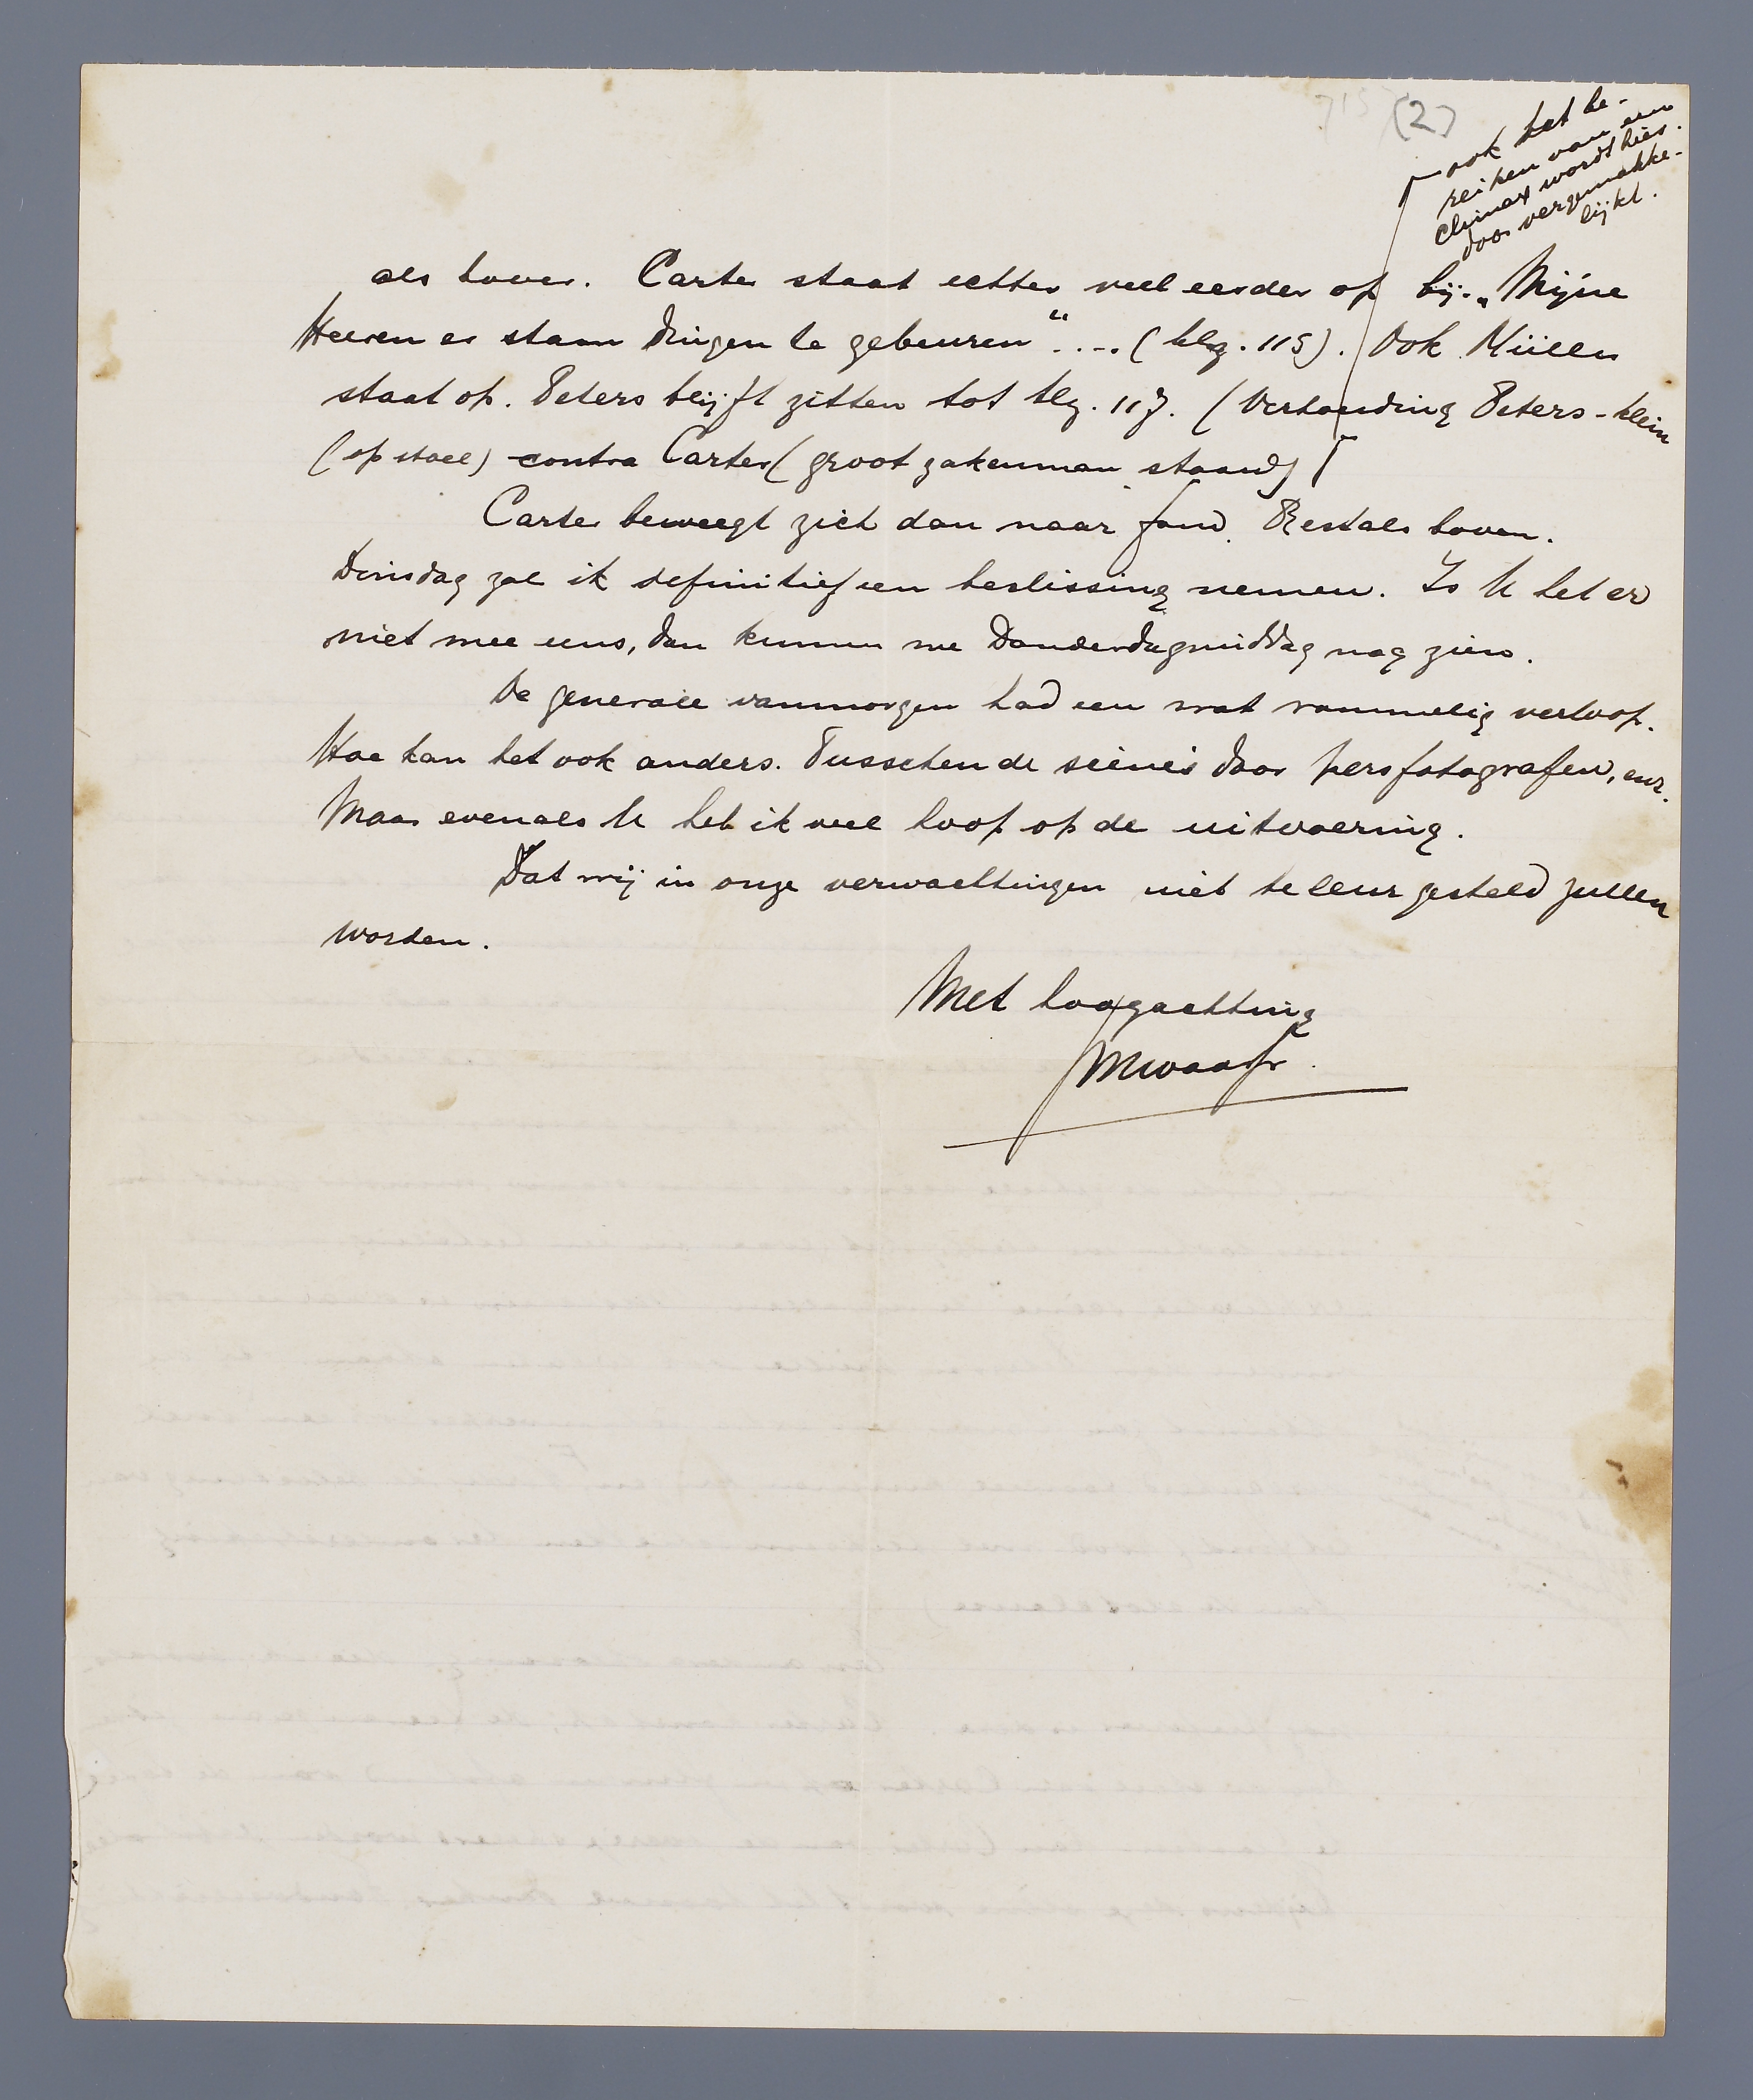 (2)
ook het be-
reiken van een
climax wordt hier
door vergemakke-
lijkt.
als boven. Carter staat echter veel eerder op bij „Mijne
Heeren er staan dingen te gebeuren“ .... (blz. 115). Ook Müller
staat op. Peters blijft zitten tot blz. 117. (Verhouding Peters - klein
(op stoel) contra Carter (groot zakenman staand)
Carter beweegt zich dan naar fond. Rest als boven.
Dinsdag zal ik definitief een beslissing nemen. Is U het er
niet mee eens, dan kunnen we Donderdagmiddag nog zien.
De generale vanmorgen had een wat rommelig verloop.
Hoe kan het ook anders. Tusschen de scènes door persfotografen, enz.
Maar evenals U heb ik veel hoop op de uitvoering.
Dat wij in onze verwachtingen niet teleur gesteld zullen
worden.
Met hoogachting